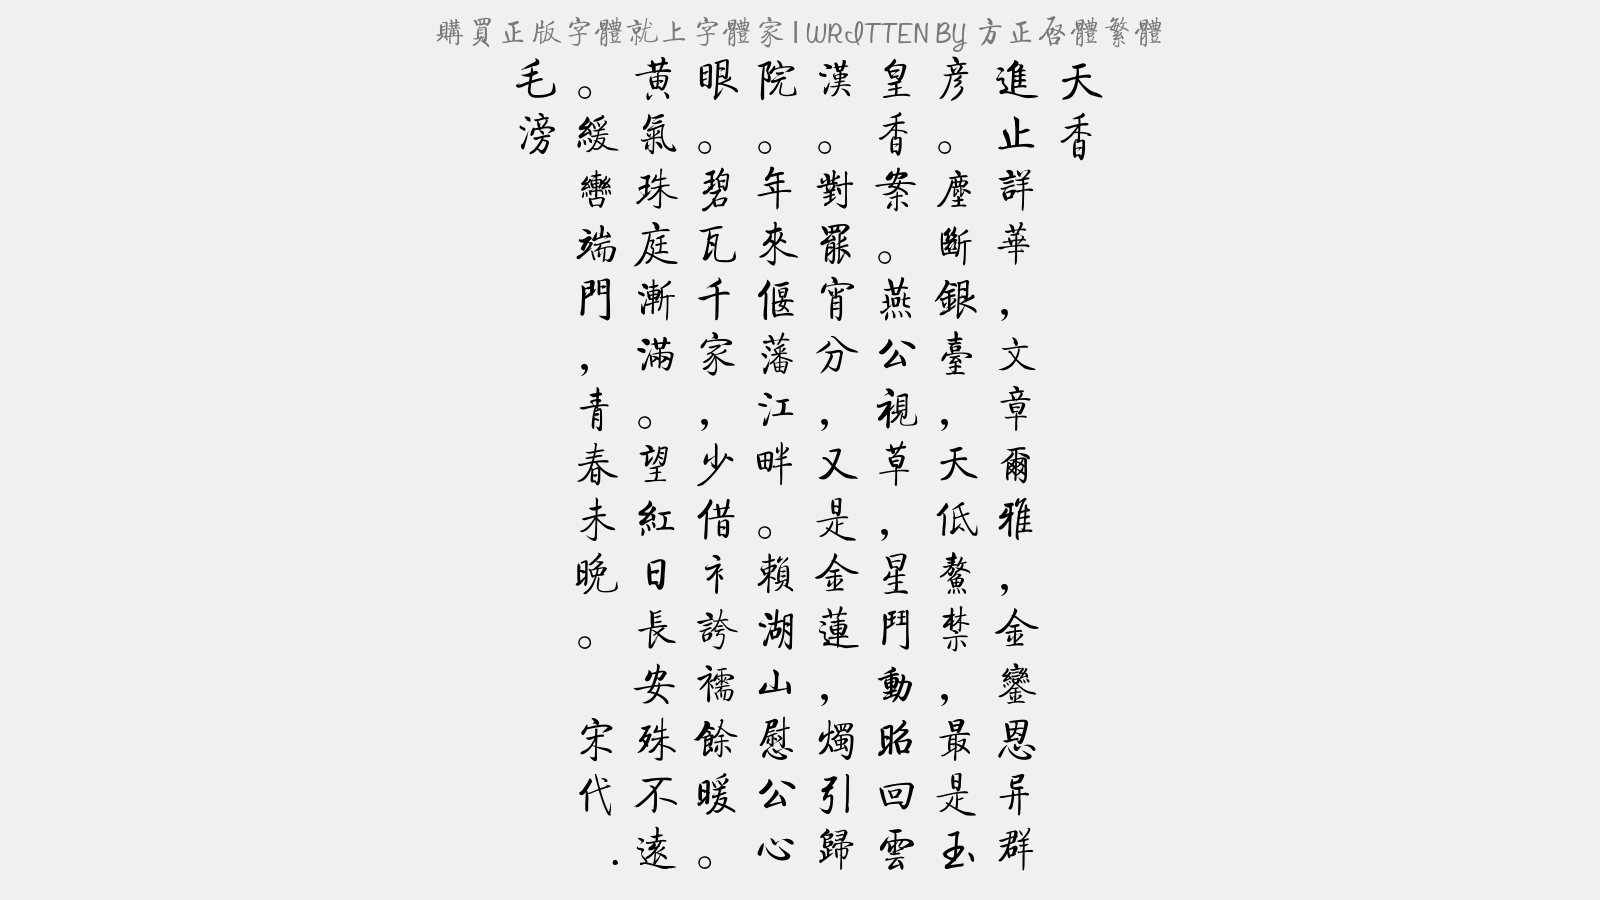 購買正版字體就上字體家 | WRITTEN BY 方正啓體繁體
天香
進止詳華，文章爾雅，金鑾恩异群
彦。塵斷銀臺，天低鰲禁，最是玉
皇香案。燕公視草，星鬥動昭回雲
漢。對罷宵分，又是金蓮，燭引歸
院。年來偃藩江畔。賴湖山慰公心
眼。碧瓦千家，少借衤誇襦餘暖。
黃氣珠庭漸滿。望紅日長安殊不遠
。緩轡端門，青春未晚。 宋代.
毛滂